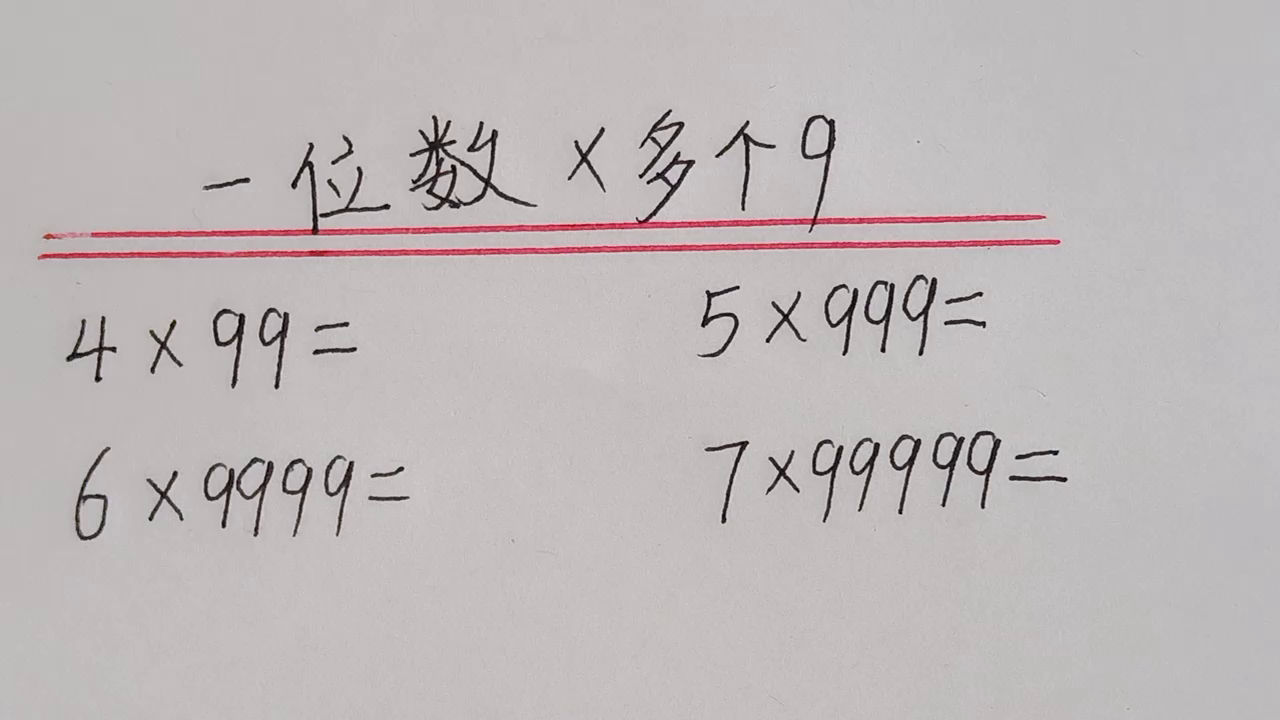 一位数×多个9
4×99= 5×999=
6×9999= 7×99999=